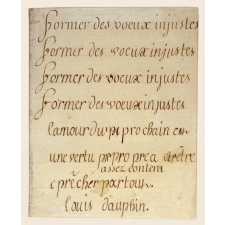 former des voeux injustes
former des voeux injustes
former des voeux injustes
former des voeux injustes
lamour du prochain est
une vertu propre a etre
assez content
prêcher partout.
louis dauphin.